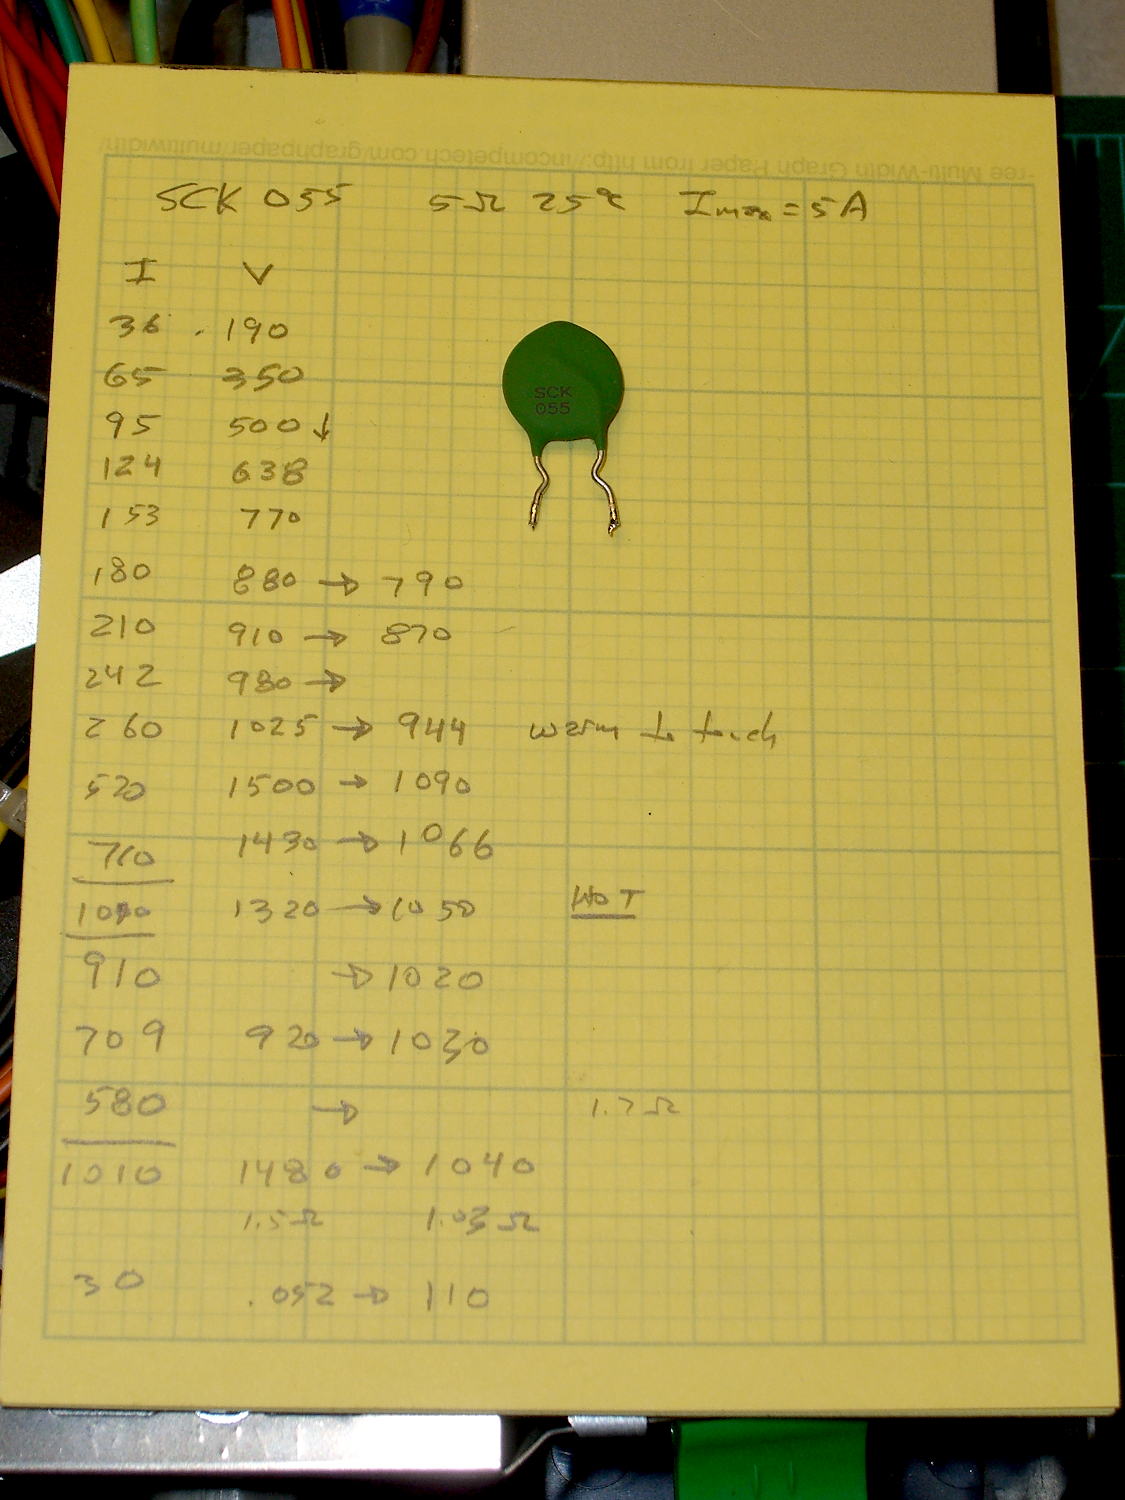 ree Multi-Width Graph Paper from http://incompetech.com/graphpaper/multiwidth/
SCK 055 5Ω 25°C Imax = 5A
I V
36 .190
65 350
SCK
055
95 500 ↓
124 638
153 770
180 880 → 790
210 910 → 870
242 980 →
260 1025 → 944 warm to touch
520 1500 → 1090
710 1430 → 1066
1320 → 1050 HOT
910 → 1020
709 920 → 1030
580 → 1.7Ω
1010 1480 → 1040
1.5Ω 1.03Ω
30 .052 → 110